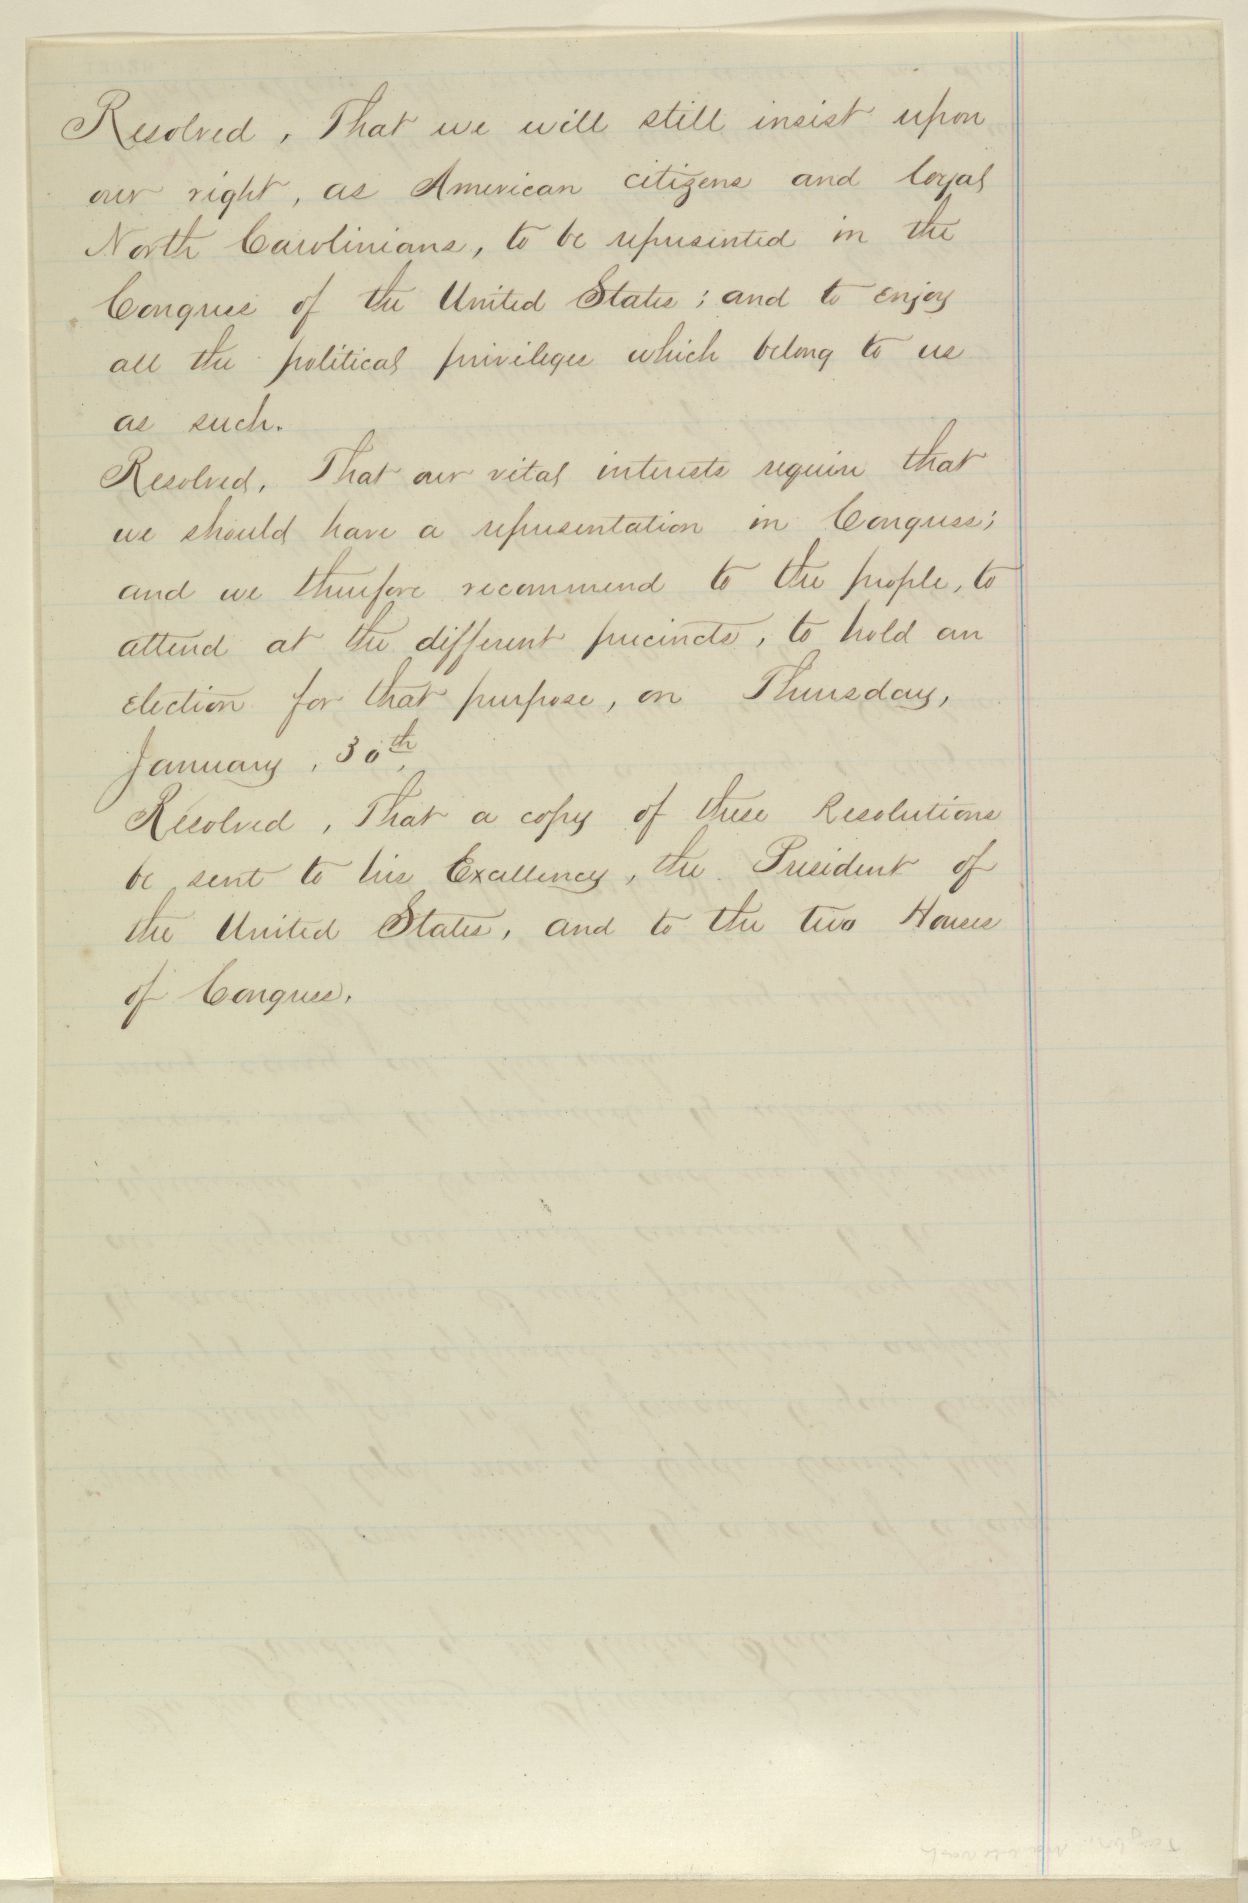 Resolved, That we will still insist upon
our right, as American citizens and loyal
North Carolinians, to be represented in the
Congress of the United States; and to enjoy
all the political privileges which belong to us
as such.
Resolved, That our vital interests require that
we should have a representation in Congress;
and we therefore recommend to the people, to
attend at the different precincts, to hold an
election for that purpose, on Thursday,
January, 30th.
Resolved, That a copy of these Resolutions
be sent to his Excellency, the President of
the United States, and to the two Houses
of Congress.